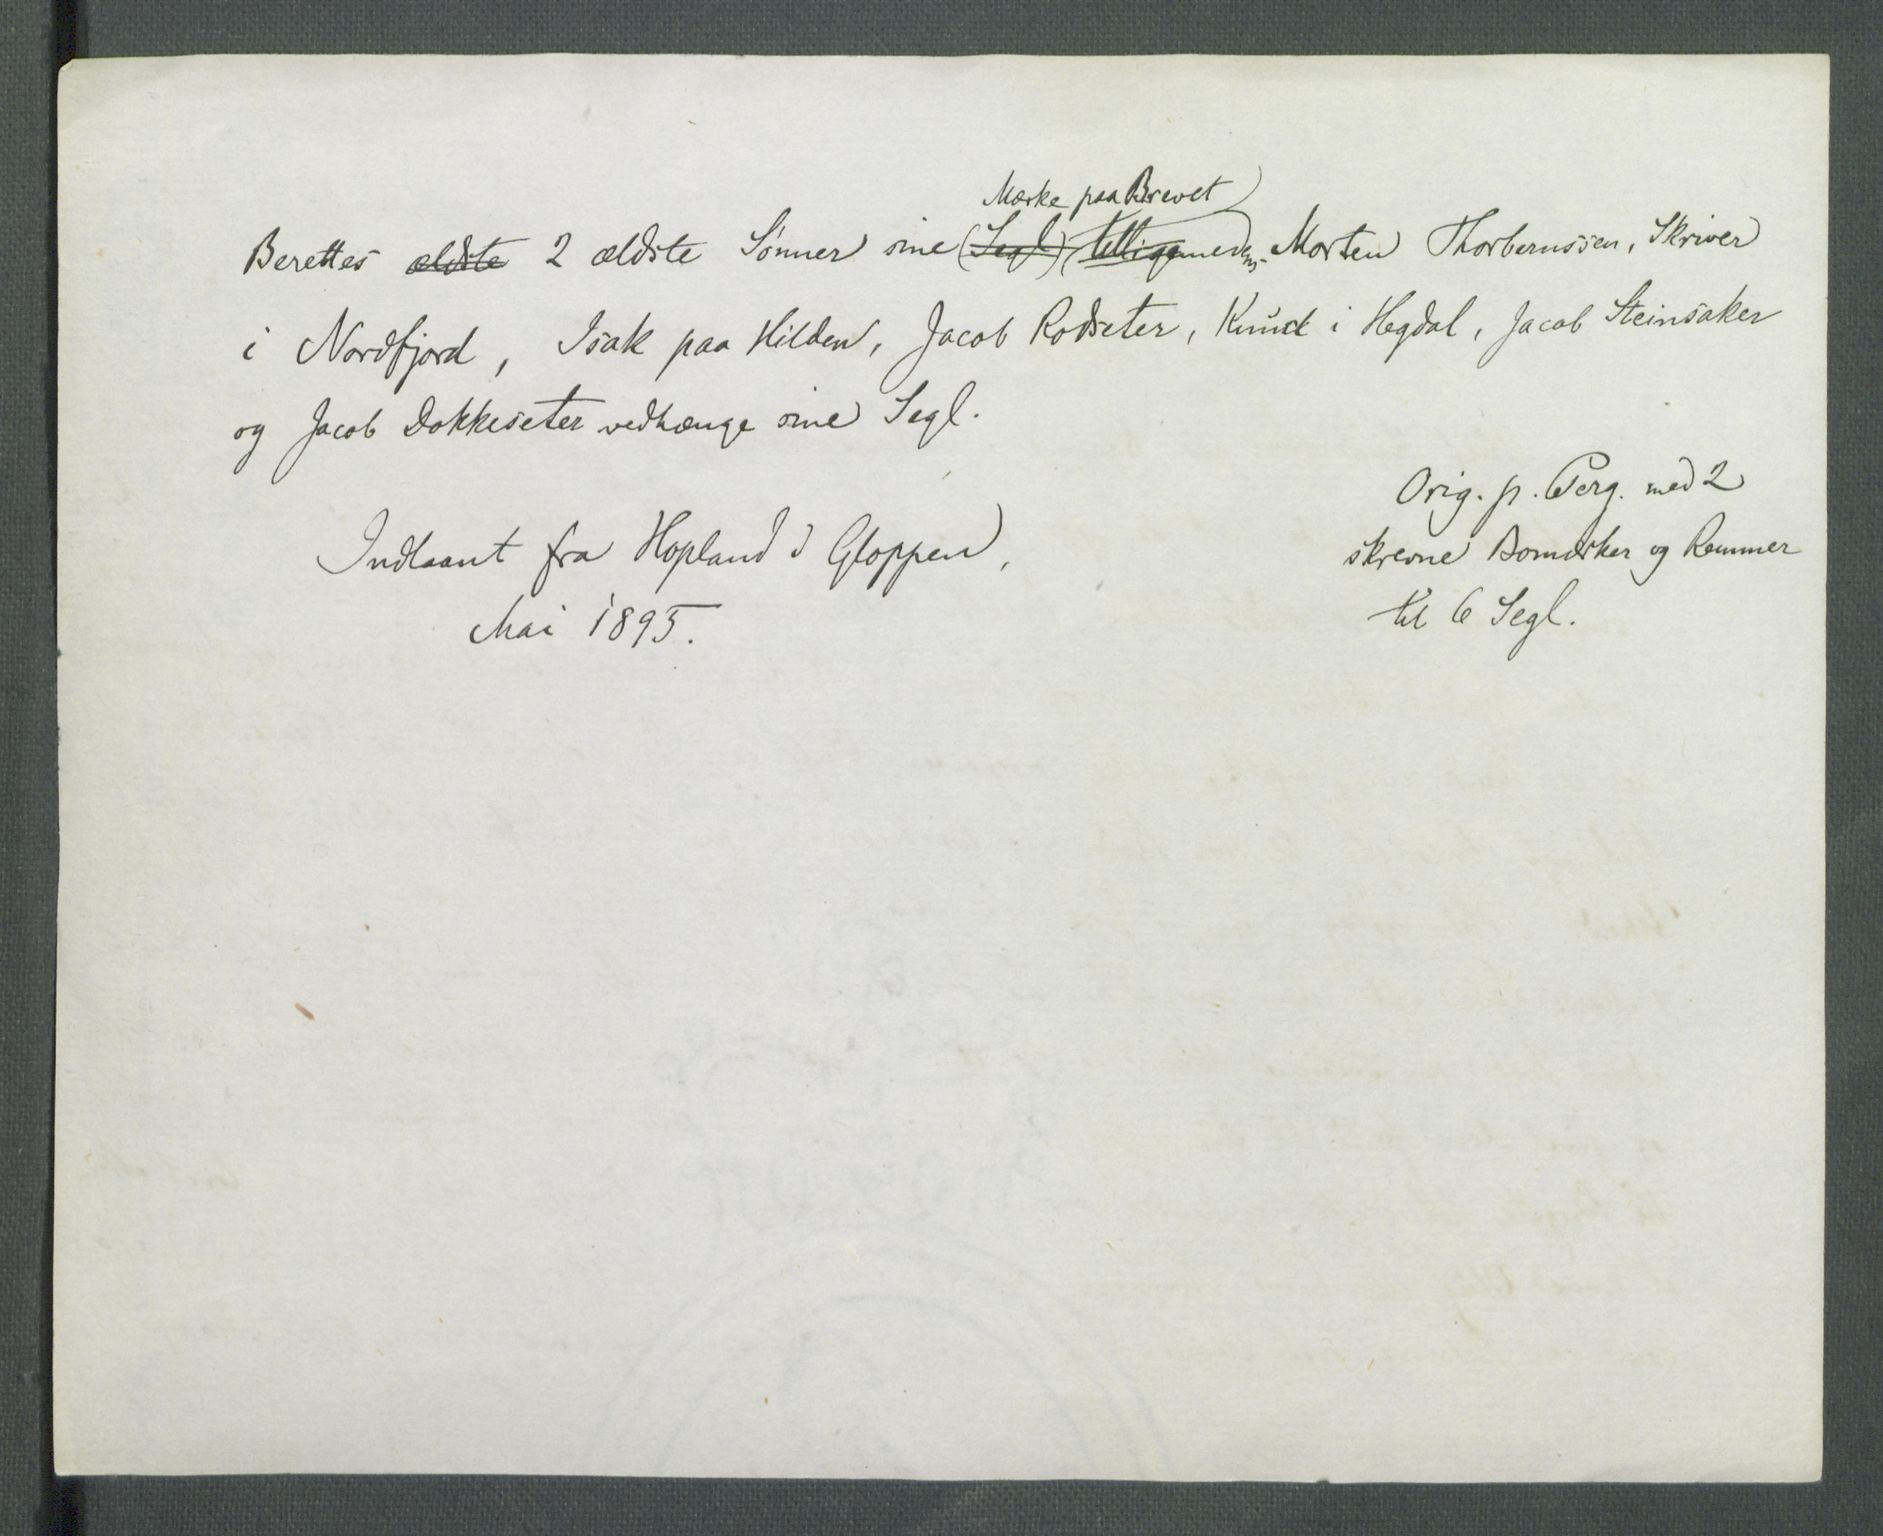 Mærke paa Brevet
Berettes ældste 2 ældste Sønner sine (Segl) (tilligemed Morten Thorbernssen, Skriver
i Nordfjord, Isak paa Hilden, Jacob Rodseter, Knud i Hegdal, Jacob Steinsaker
og Jacob Dokkeseter vedhænge sine Segl.
Orig. p. Perg. med 2
skrevne Bomærker og Remmer
til 6 Segl.
Indlaant fra Hopland i Gloppen,
Mai 1895.